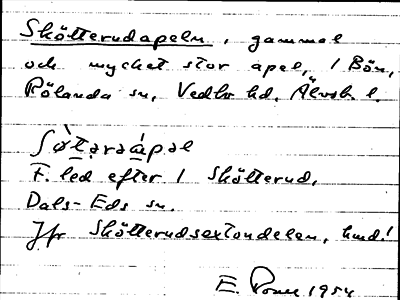 Skötterudapeln, gammal
och mycket stor apel, i Bön,
Rölanda sn, Vedbo hd, Älvsb. l.
ʃø̀t̠ərəápəl
F. led efter i Skötterud,
Dals-Eds sn.
Jfr Skötterudsextondelen, hmd!
E. 1954